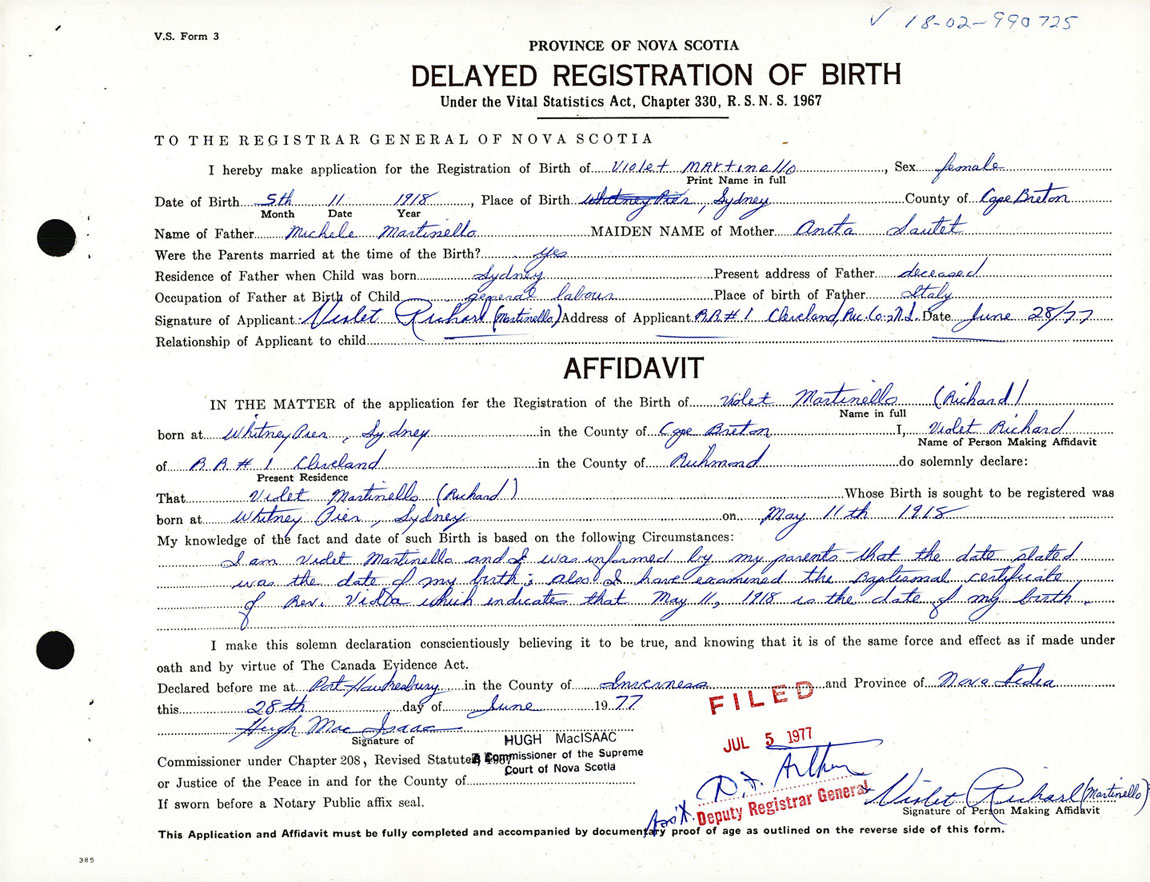 ✓ 18-02-990725
V.S. Form 3
PROVINCE OF NOVA SCOTIA
DELAYED REGISTRATION OF BIRTH
Under the Vital Statistics Act, Chapter 330, R. S. N. S. 1967
TO THE REGISTRAR GENERAL OF NOVA SCOTIA
I hereby make application for the Registration of Birth of Violet Martinello, Sex female
Print Name in full
Date of Birth 5th 11 1918, Place of Birth Whitney Pier, Sydney County of Cape Breton
Month Date Year
Name of Father Michele Martinello MAIDEN NAME of Mother Anita Sautet
Were the Parents married at the time of the Birth? Yes
Residence of Father when Child was born Sydney Present address of Father deceased
Occupation of Father at Birth of Child general labour Place of birth of Father Italy
Signature of Applicant Violet Richard (Martinello) Address of Applicant R.R.#1 Cleveland, Ric. Co. N.S. Date June 28/77
Relationship of Applicant to child
AFFIDAVIT
IN THE MATTER of the application for the Registration of the Birth of Violet Martinello (Richard)
Name in full
born at Whitney Pier, Sydney in the County of Cape Breton I, Violet Richard
Name of Person Making Affidavit
of R.R.#1 Cleveland in the County of Richmond do solemnly declare:
Present Residence
That Violet Martinello (Richard) Whose Birth is sought to be registered was
born at Whitney Pier, Sydney on May 11th 1918
My knowledge of the fact and date of such Birth is based on the following Circumstances:
I am Violet Martinello and I was informed by my parents that the date stated
was the date of my birth; also I have examined the Baptismal certificate
of Rev. Viola which indicates that May 11, 1918 is the date of my birth.
I make this solemn declaration conscientiously believing it to be true, and knowing that it is of the same force and effect as if made under
oath and by virtue of The Canada Evidence Act.
Declared before me at Port Hawkesbury in the County of Inverness and Province of Nova Scotia
this 28th day of June 1977
FILED
Hugh MacIsaac
Signature of
HUGH MacISAAC
Commissioner of the Supreme
Court of Nova Scotia
JUL 5 1977
Commissioner under Chapter 208, Revised Statutes, 1967
or Justice of the Peace in and for the County of
If sworn before a Notary Public affix seal.
Ass't. Deputy Registrar General
Violet Richard (Martinello)
Signature of Person Making Affidavit
This Application and Affidavit must be fully completed and accompanied by documentary proof of age as outlined on the reverse side of this form.
385